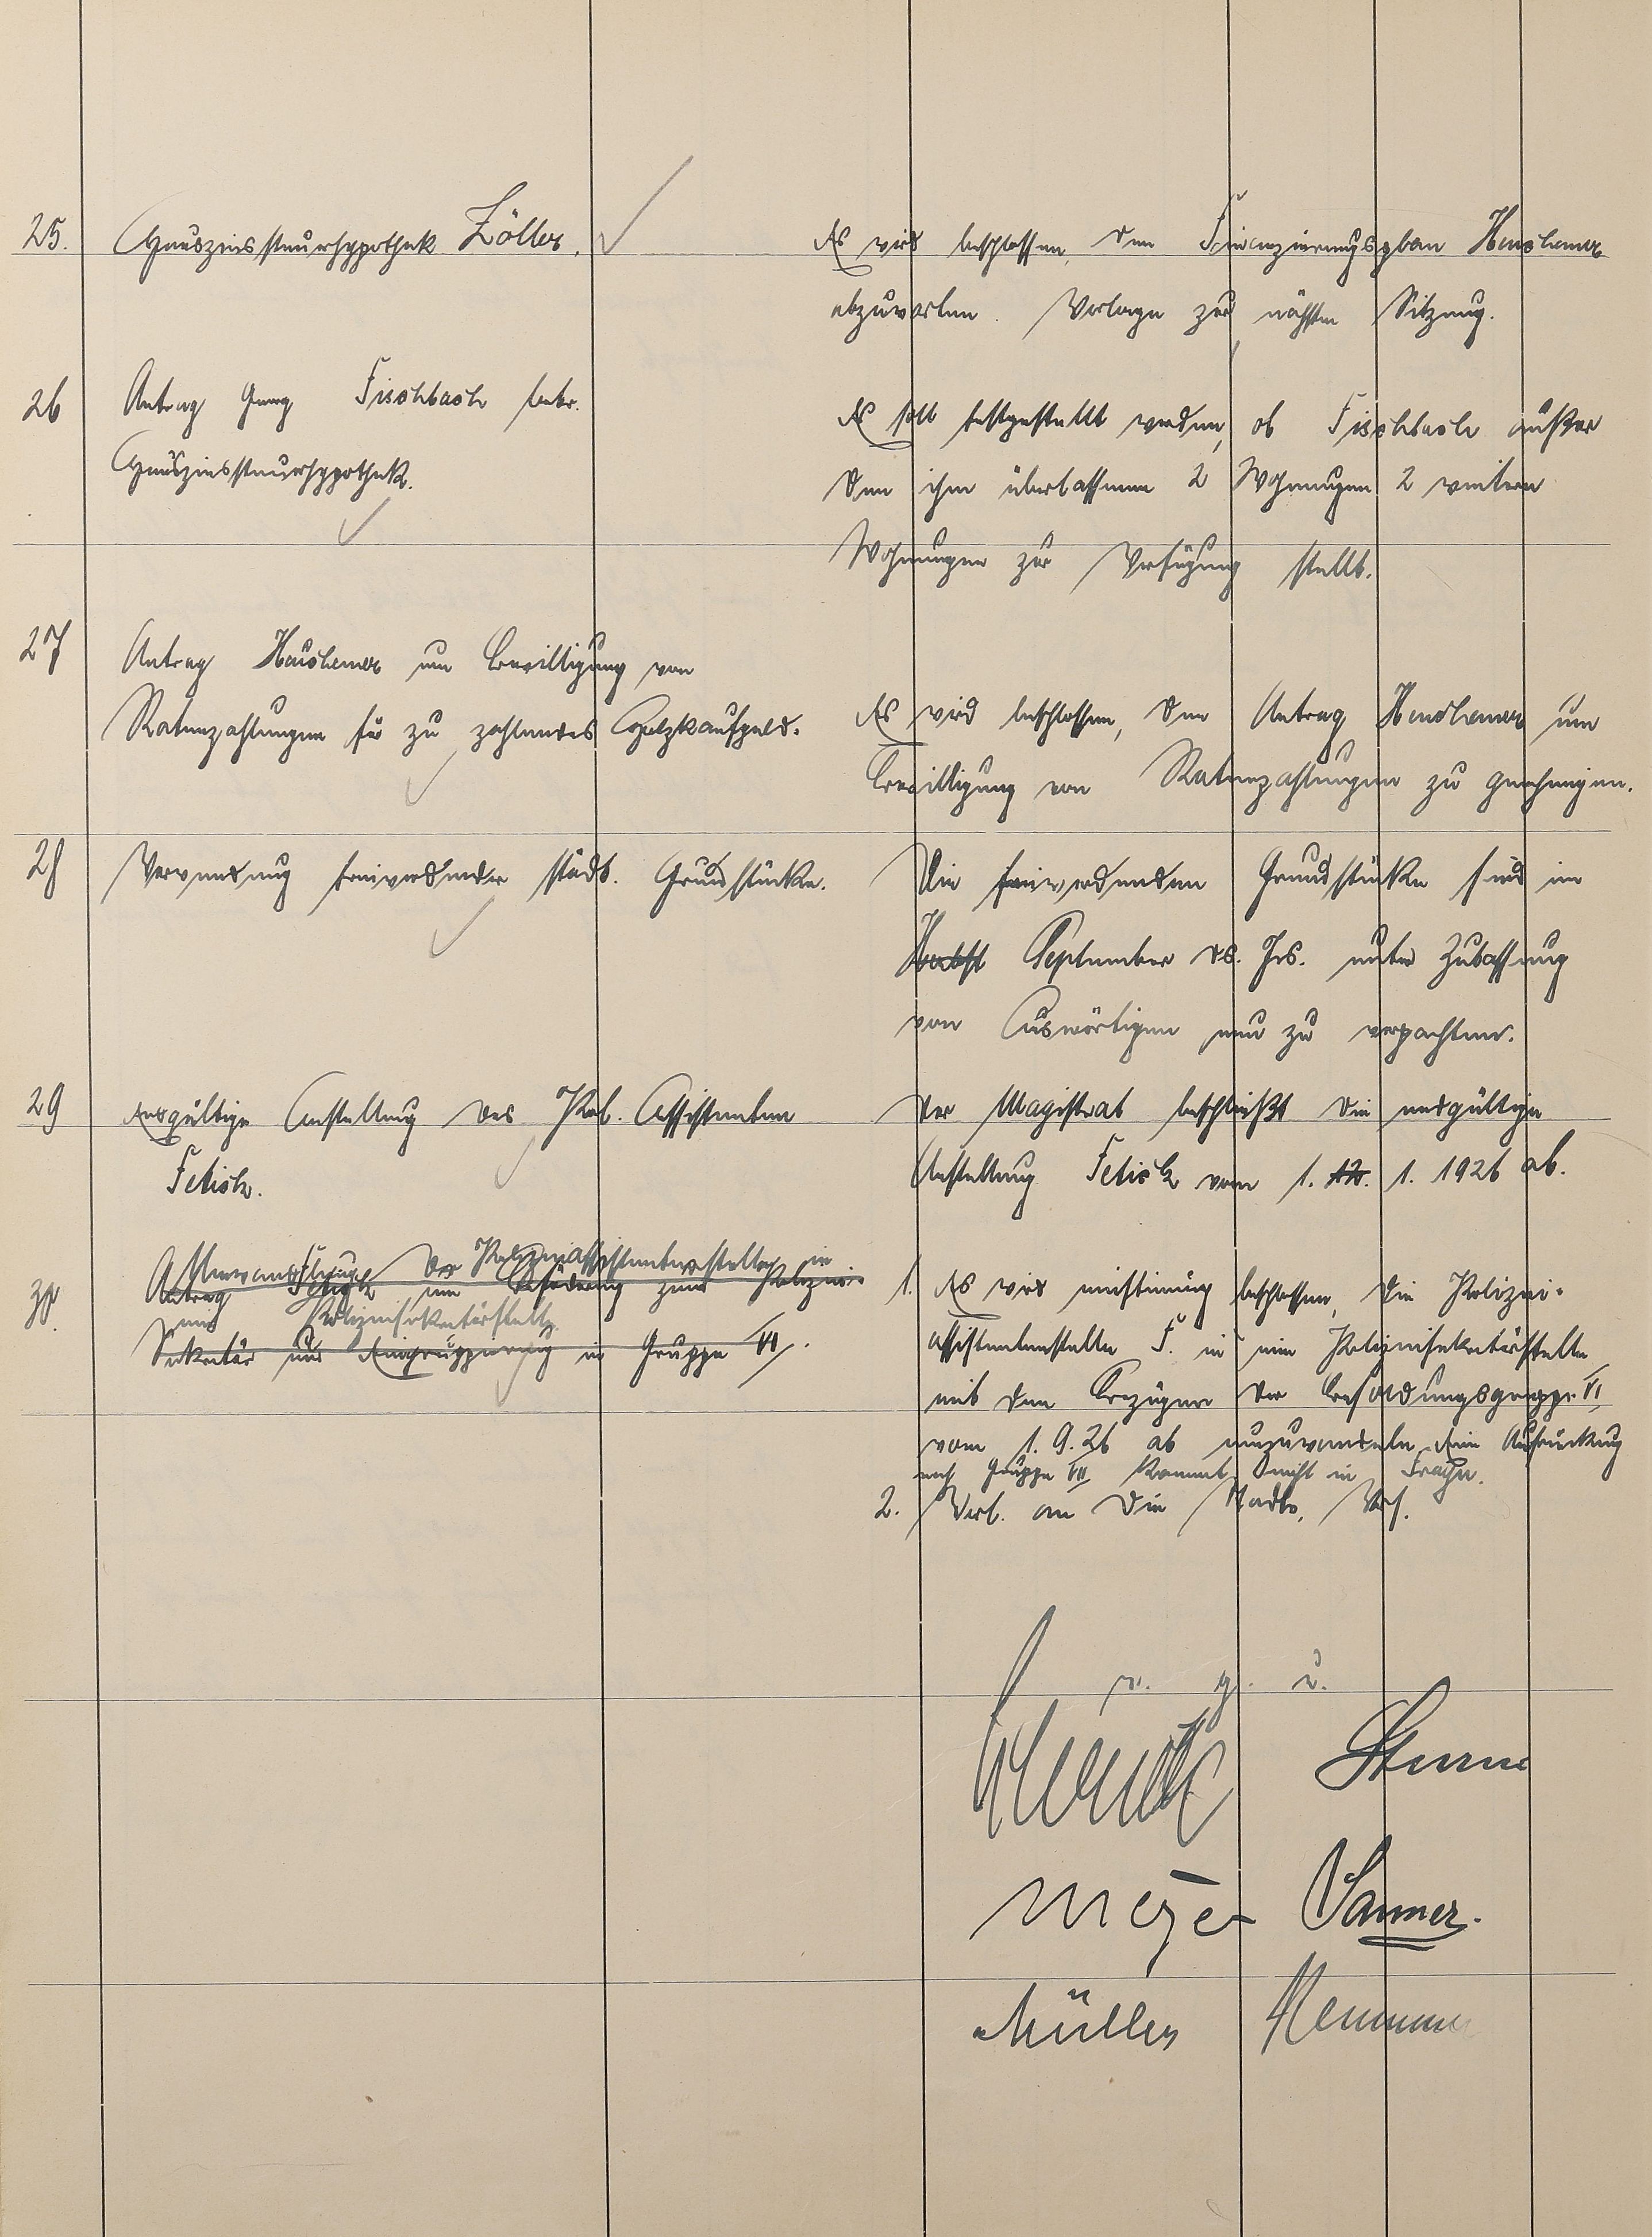 25. Hauszinssteuerhypothek Zöller.
Es wird beschlossen, den Finanzierungsplan
abzuwarten. Vorlage zur nächsten Sitzung.
26 Antrag Georg Fischbach betr.
Hauszinssteuerhypothek.
Es soll festgestellt werden, ob Fischbach außer
den ihm überlassenen 2 Wohnungen 2 weitere
Wohnungen zur Verfügung stellt.
27 Antrag um Bewilligung von
Ratenzahlungen für zu zahlendes Holzkaufgeld.
Es wird beschlossen, den Antrag um
Bewilligung von Ratenzahlungen zu genehmigen.
28 Verwendung freiwerdender städt. Grundstücke.
Die freiwerdenden Grundstücke sind im
Herbst September ds. Js. unter Zulassung
von Auswärtigen neu zu verpachten.
29 Endgültige Anstellung des Pol. Assistenten
Fetisch.
Der Magistrat beschließt die endgültige
Anstellung Fetisch vom 1. 12. 1. 1926 ab.
30. Umwandlung der Polizeiassistentenstelle in
Antrag Fetisch um Beförderung zum Polizei-
eine Polizeisekretärstelle.
Sekretär und Eingruppierung in Gruppe VI.
1. Es wird einstimmig beschlossen, die Polizei-
assistentenstelle F. in eine Polizeisekretärstelle
mit den Bezügen der Besoldungsgruppe VI
vom 1.9.26 ab umzuwandeln. Eine Aufrückung
nach Gruppe VII kommt nicht in Frage.
2. Vorl. an die Stadtv. Vers.
v. g. u.
Sturm
Meyer Sanner.
Müller